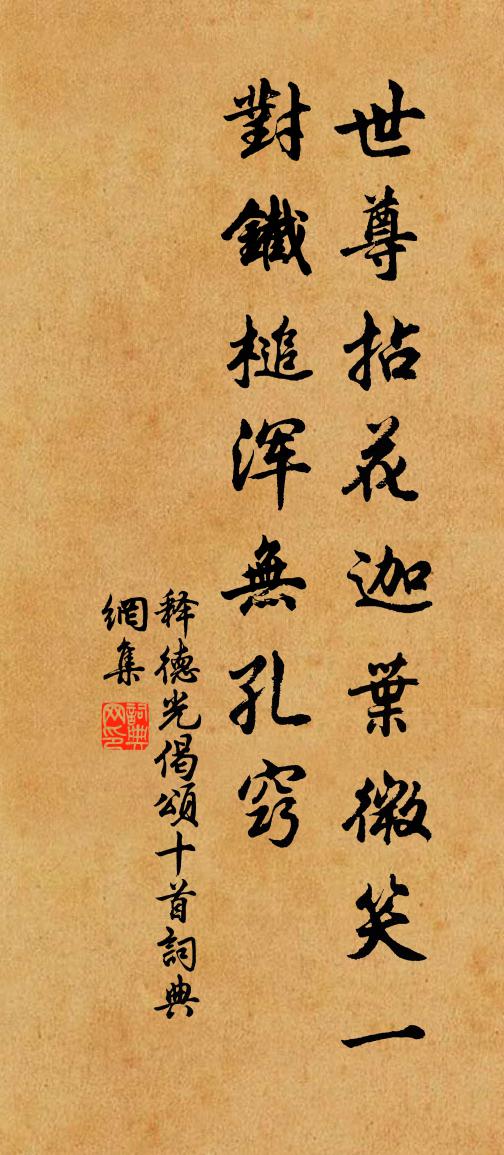 世尊拈花迦葉微笑一
對鐵槌渾無孔窍
释德光偈頌十首詞典
網集
詞典网印